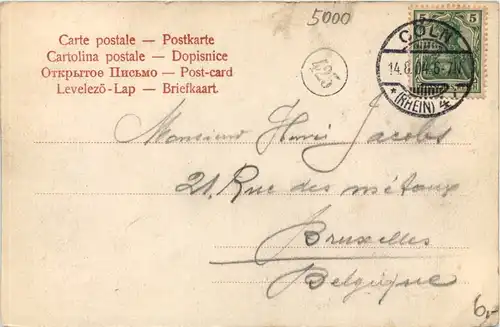 5000
5 5
Carte postale — Postkarte
Cartolina postale — Dopisnice
Открытое Письмо — Post-card
Levelező-Lap — Briefkaart.
CÖLN
(RHEIN)
425
Monsieur Henri Jacobs
21, Rue des métaux
Bruxelles
Belgique
6,-